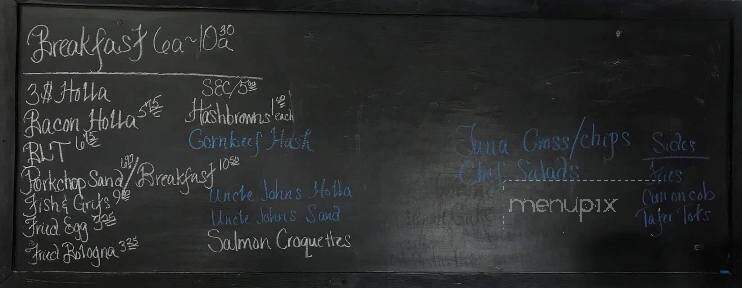 Breakfast 6a~10³⁰a
3# Holla
Bacon Holla 5⁷⁵
BLT
Porkchop Sand/Breakfast 10⁵⁰
Fish & Grits
Fried Egg 3²⁵
Fried Bologna 3²⁵
SEC/5⁰⁰
Hashbrowns 1⁰⁰ each
Cornbeef Hash
Uncle John's Holla
Uncle John's Sand
Salmon Croquettes
Tuna Cross/chips
Chef Salads
Sides
Fries
Corn on cob
Tater tots
menupix